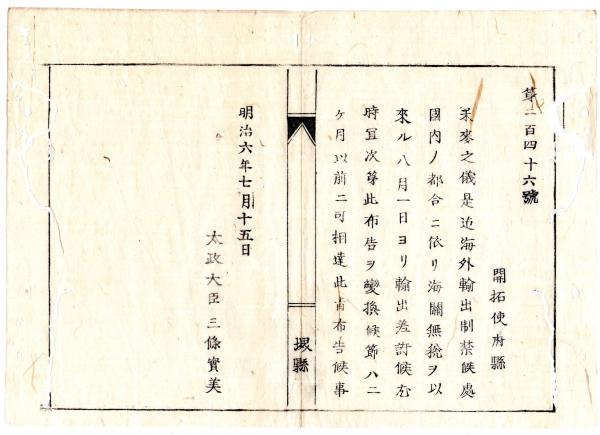 第二百四十六號
開拓使府縣
米麥之儀是迄海外輸出制禁候處
國内ノ都合ニ依リ海關無税ヲ以
來ル八月一日ヨリ輸出差許候尤
時宜次第此布告ヲ變換候節ハ二
ケ月以前ニ可相達此旨布告候事
堺縣
明治六年七月十五日
太政大臣三條實美